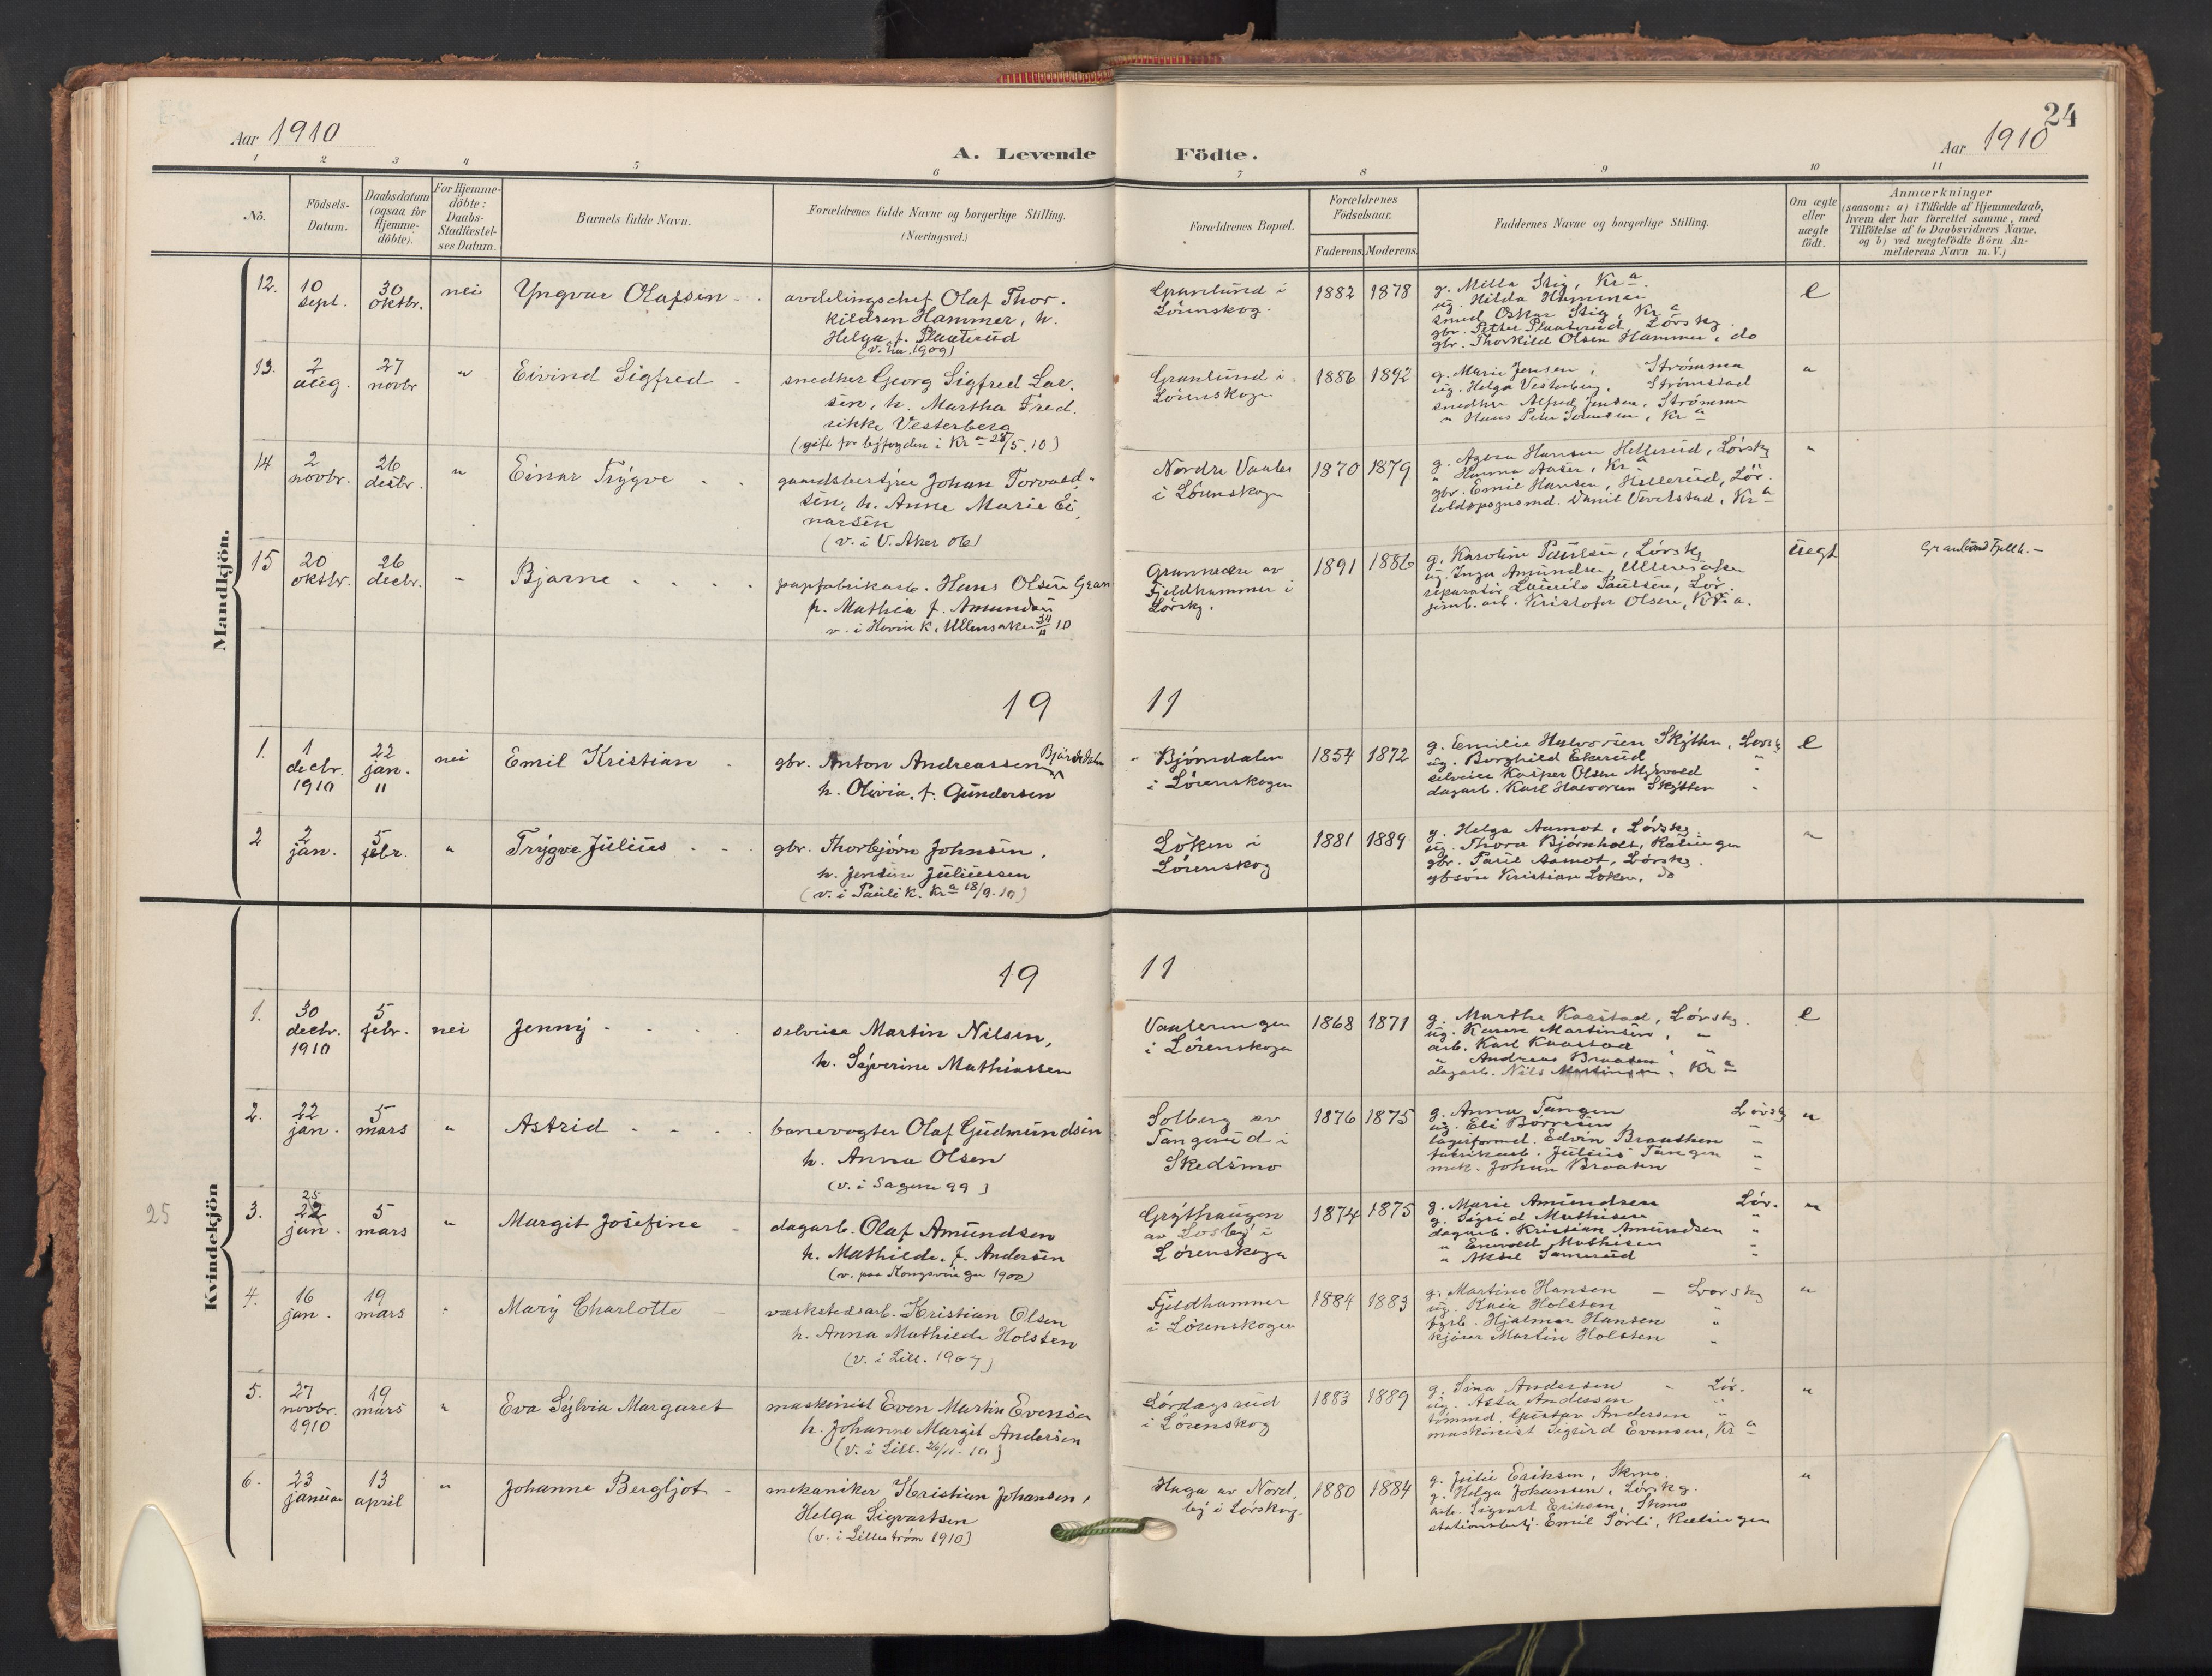 24
Aar 1910
Aar 1910
A. Levende Födte.
1 2 3 4 5 6 7 8 9 10 11
No.
Födsels-Datum.
Daabsdatum (ogsaa for Hjemme-döbte).
For Hjemme-döbte: Daabs-Stadfæstel-ses Datum.
Barnets fulde Navn.
Forældrenes fulde Navne og borgerlige Stilling.
(Næringsvei.)
Forældrenes Bopæl.
Forældrenes Födselsaar.
Faderens. Moderens.
Faddernes Navne og borgerlige Stilling.
Om ægte eller uægte födt.
Anmærkninger
(saasom: a) i Tilfælde af Hjemmedaab,
hvem der har forrettet samme, med
Tilföielse af to Daabsvidners Navne.
og b) ved uægtefödte Börn An-
melderens Navn m. V.)
Mandkjön.
12. 10 sept. 30 oktbr. nei Yngvar Olafsen
avdelingschef Olaf Thor-
kildsen Hammer, h.
Helga f. Plaaterud
1909)
Granlund i
Lörenskog.
1882 1878
g. Milla Stig, Kra.
ug. Hilda Hammer
smed Oskar Stig, Kra
gbr. Petter Plaaterud, Lörskg.
gbr. Thorkild Olsen Hammer, do
e
13. 2 aug. 27 novbr " Eivind Sigfred
snedker Georg Sigfred Lar-
sen, h. Martha Fred-
rikke Vesterberg
(gift for byfogden i Kra 28/5.10)
Granlund i
Lörenskogen
1886 1892
g. Marie Jensen, Strömmen
ug. Helga Vesterberg, Strömstad
snedker Alfred Jensen, Strömmen
" Hans Peter Sörensen, Kra
"
14 2 novbr. 26 desbr. " Einar Trygve
gaardsbestyrer Johan Torvald-
sen, h. Anne Marie Ei-
narsen
(v. i V. Aker 06)
Nordre Vaaler
i Lörenskogen
1870 1879
g. Agnes Hansen Hellerud, Lörskg
" Hanna Aaser, Kra
gbr. Emil Hansen, Hellerud, Lör.
toldopsynsmd. Daniel Vevelstad, Kra
"
15 20 oktbr. 26 decbr. - Bjarne
papfabrikarb. Hans Olsen Gran
p. Mathea f. Amundsen
v. i Hovin K. Ullensaker 10
Granneden av
Fjeldhammer i
Lörskg.
1891 1886
g. Karoline Paulsen, Lörskg
ug. Inga Amundsen, Ullensaker
reparatör Paulsen, Lör.
jernb. arb. Kristofer Olsen, Kr.a.
uegt
Granlund Fjellh. -
19 11
1. 1 decbr. 1910 22 jan. 11 nei Emil Kristian
gbr. Anton Andreassen Björndalen
h. Olivia, f. Gundersen
Björndalen
i Lörenskogen
1854 1872
g. Emilie Halvorsen Skytten, Lörskg
ug. Borghild Ekerud "
selveier Kasper Olsen Myrvold "
dagarb. Karl Halvorsen Skytten "
e
2 2 jan. 5 febr. " Trygve Julius
gbr. Thorbjörn Johnsen,
h. Jensine Juliussen
(v. i Pauli K. Kra 18/9.10)
Löken i
Lörenskog
1881 1889
g. Helga Aamot, Lörskg.
ug. Thora Bjørnholt, Rælingen
gbr. Paul Aamot, Lörskg.
gbsön Kristian Löken, do
"
Kvindekjön
19 11
1. 30 decbr. 1910 5 febr. nei Jenny
selveier Martin Nilsen,
h. Syverine Mathiassen
Vaaleringen
i Lörenskogen
1868 1871
g. Marthe Kaastad, Lörskg.
ug. Karen Martinsen, "
arb. Karl Kaastad "
" Andreas Braaten "
dagarb. Nils Martinsen, Kra
e
2. 22 jan. 5 mars " Astrid
banevogter Olaf Gudmundsen
h. Anna Olsen
(v. i Sagene 99)
Solberg av
Tangerud i
Skedsmo
1876 1875
g. Anna Tangen Lörskg
ug. Eli Börresen "
lagerformd. Edvin Braathen "
fabrikarb. Julius Tangen "
mek. Johan Braaten "
"
25
3. 25 22 jan. 5 mars " Margit Josefine
dagarb. Olaf Amundsen
h. Mathilde, f. Andersen
(v. paa Kongsvinger 1900)
Grythaugen
av Losby i
Lörenskogen
1874 1875
g. Marie Amundsen Lör.
g. Sigrid Mathisen "
dagarb. Kristian Amundsen "
" Enevold Mathisen "
" Aksel Samuerud "
"
4. 16 jan. 19 mars " Mary Charlotte
værkstedsarb. Kristian Olsen
h. Anna Mathilde Holsten
(v. i Lill. 1907)
Fjeldhammer
i Lörenskogen
1884 1883
g. Martine Hansen - Lorskg
ug. Kaia Holsten "
fyrb. Hjalmar Hansen "
kjører Martin Holsten "
"
5. 27 novbr. 1910 19 mars " Eva Sylvia Margaret
maskinist Even Martin Evensen
h. Johanne Margit Andersen
(v. i Lill. 26/11.10)
Lördagsrud
i Lörenskog
1883 1889
g. Lina Andersen - Lör.
ug. Asta Andersen "
tömmd. Gustav Andersen "
maskinist Sigurd Evensen, Kra
"
6. 23 januar 13 april " Johanne Bergljot
mekaniker Kristian Johansen,
Helga Sigvartsen
(v. i Lilleström 1910)
Haga av Nord-
by i Lörskog
1880 1884
g. Julie Eriksen, Skmo.
g. Helga Johansen, Lörskg.
arb. Sigvart Eriksen, Skmo
stationsbetj. Emil Sörli, Rælingen
"